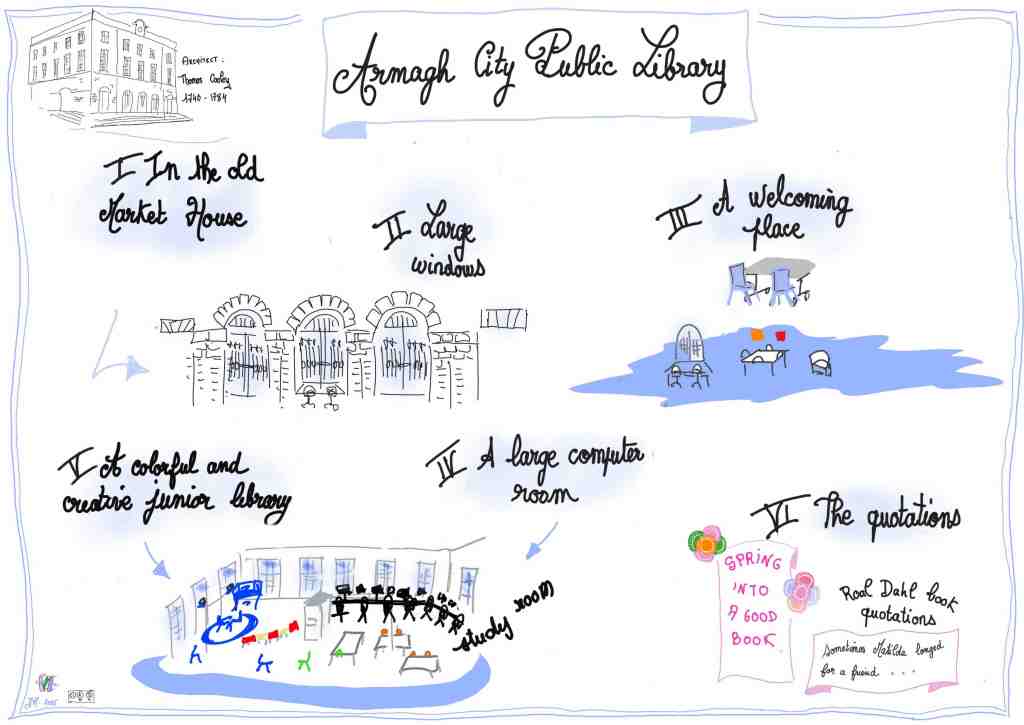 Armagh City Public Library
Architect:
Thomas Cooley
1740 - 1784
I In the old
Market House
II Large
windows
III A welcoming
place
IV A large computer
room
V A colorful and
creative junior library
study room
VI The quotations
SPRING
INTO
A GOOD
BOOK
Roal Dahl book
quotations
Sometimes Matilda longed
for a friend ...